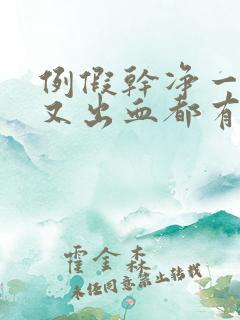 例假幹净一
又出血都有
霍金森
未经同意禁止转载